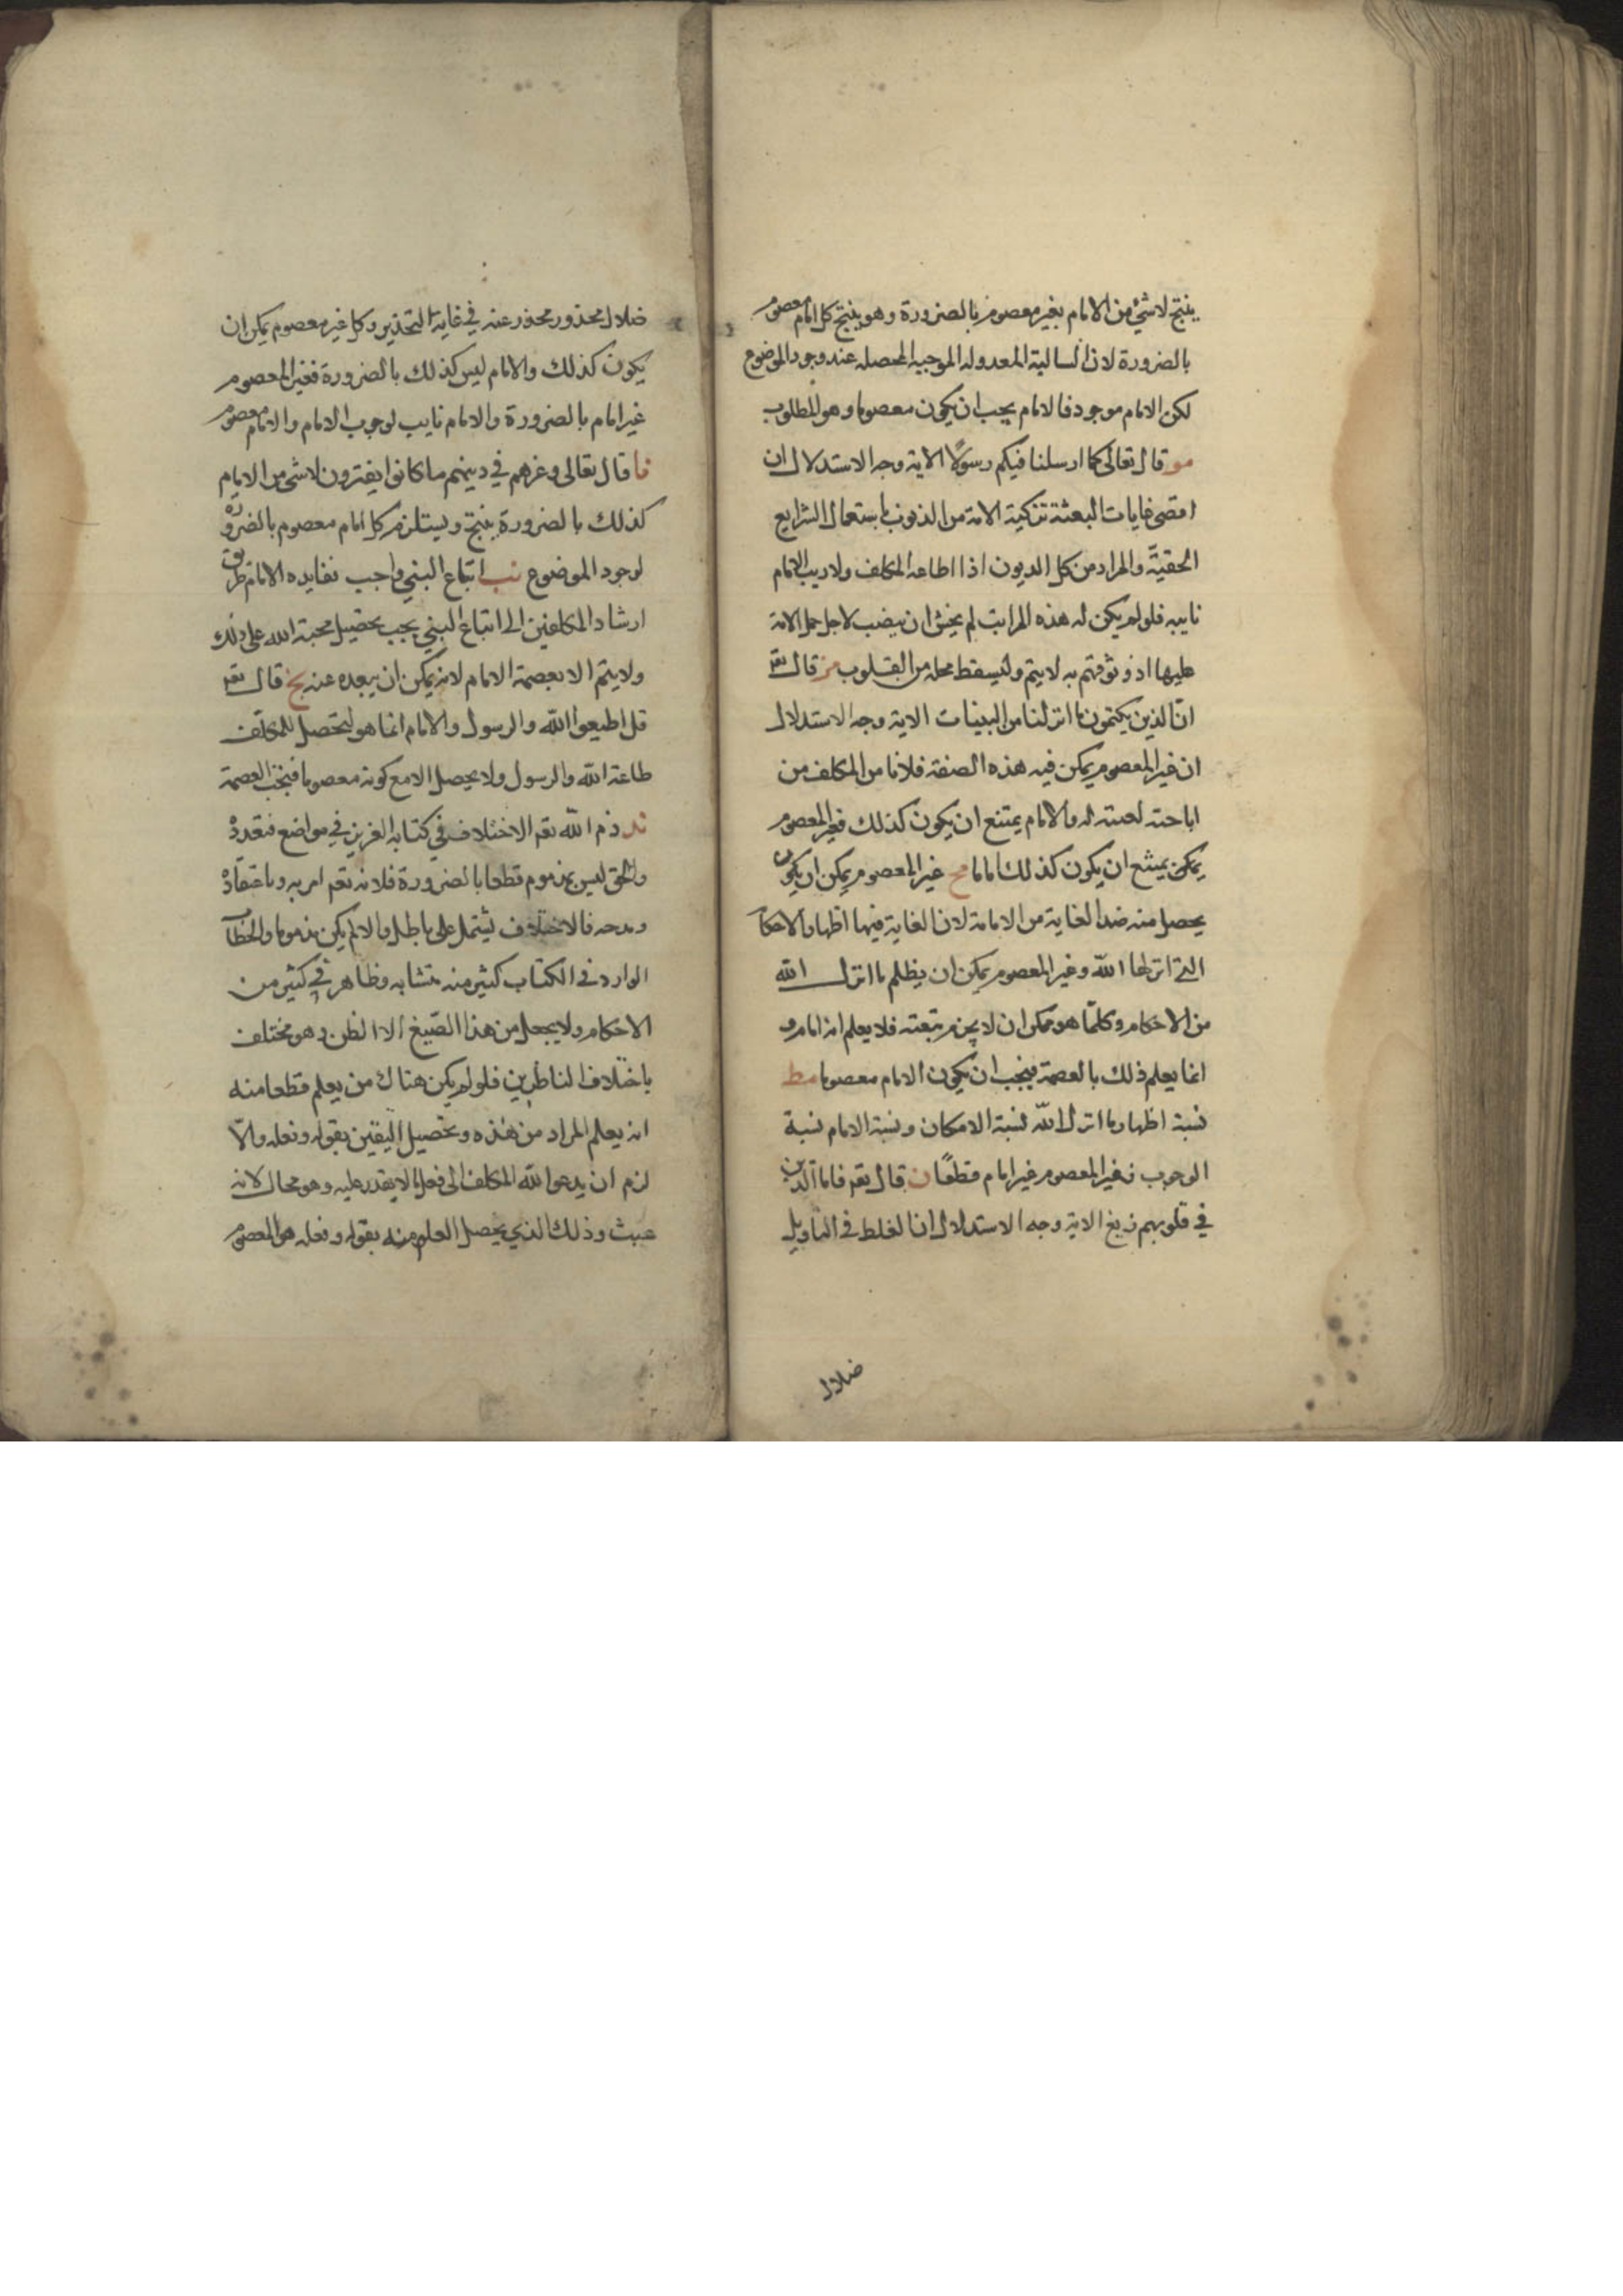 ينتج لاشئ من الامام بغير معصوم بالضرورة وهو ينتج كل امام معصوم
بالضرورة لان السالبة المعدوله الموجبه المحصله عند وجود الموضوع
لكن الامام موجود فالامام يجب ان يكون معصوما وهو المطلوب
مو قال تعالى كما ارسلنا فيكم رسولا الاية وجه الاستدلال ان
اقصى غايات البعثة تزكية الامة من الذنوب باستعمال الشرايع
الحقيّة والمراد من كل الديون اذا اطاعه المكلف ولا ريب الامام
نايبه فلو لم يكن له هذه المراتب لم يحسن ان ينصب لاجل حمل الامة
عليها اذ وثوقهم به لا يتم وليسقط محله من القلوب مز قال تعه
انّ الذين يكتمون ما انزلنا من البينات الاية وجه الاستدلال
ان غير المعصوم يمكن فيه هذه الصفة فلا نامن المكلف من
اباحته لعنته له والامام يمتنع ان يكون كذلك فغير المعصوم
يمكن يمتنع ان يكون كذلك اماما مح غير المعصوم يمكن ان يكون
يحصل منه ضد الغاية من الامامة لان الغاية فيها اظهار الاحكا
التي انزلها الله وغير المعصوم يمكن ان يظلم ما انزل الله
من الاحكام وكلما هو ممكن ان لا يجزم بتبعته فلا يعلم انه امام و
انما يعلم ذلك بالعصمة فيجب ان يكون الامام معصوما مط
نسبة اظهار ما انزل الله نسبة الامكان ونسبة الامام نسبة
الوجوب فغير المعصوم غير امام قطعًا ن قال تعه فاما الذين
في قلوبهم زيغ الاية وجه الاستدلال ان الغلط في التاويل
ضلال
ضلال محذور محذر عنه في غاية التحذير وكل غير معصوم يمكن ان
يكون كذلك والامام ليس كذلك بالضرورة فغير المعصوم
غير امام بالضرورة والامام نايب لوجوب الامام والامام معصوم
نا قال تعالى وغرهم في دينهم ما كانوا يفترون لاشئ من الامام
كذلك بالضرورة ينتج ويستلزم كل امام معصوم بالضرورة
لوجود الموضوع نب اتباع النبي واجب نفايده الامام طريق
ارشاد المكلفين الى اتباع النبي يجب بتحصيل محبة الله على ذلك
ولا يتم الا بعصمة الامام لانه يمكن ان يبعده عنه نج قال تعه
قل اطيعوا الله والرسول والامام انما هو لتحصل للمكلف
طاعة الله والرسول ولا يحصل الا مع كونه معصوما فيجب العصمة
ند ذم الله تعه الاختلاف في كتابه العزيز في مواضع متعددة
والحق ليس بمذموم قطعا بالضرورة فلانه تعه امر به وباعتقاده
ومدحه فالاختلاف يشتمل على باطل والا لم يكن مذموما والخطاب
الوارد في الكتاب كثير منه متشابه وظاهر في كثير من
الاحكام ولا يجعل من هذا الصيغ الا الظن وهو مختلف
باختلاف الناظرين فلو لم يكن هناك من يعلم قطعا منه
انه يعلم المراد من هذه وتحصيل اليقين بقوله وفعله والّا
لزم ان يدعو الله المكلف الى فعل ما لا يقدر عليه وهو محال لانه
عبث وذلك الذي يحصل العلم منه بقوله وفعله هو المعصوم